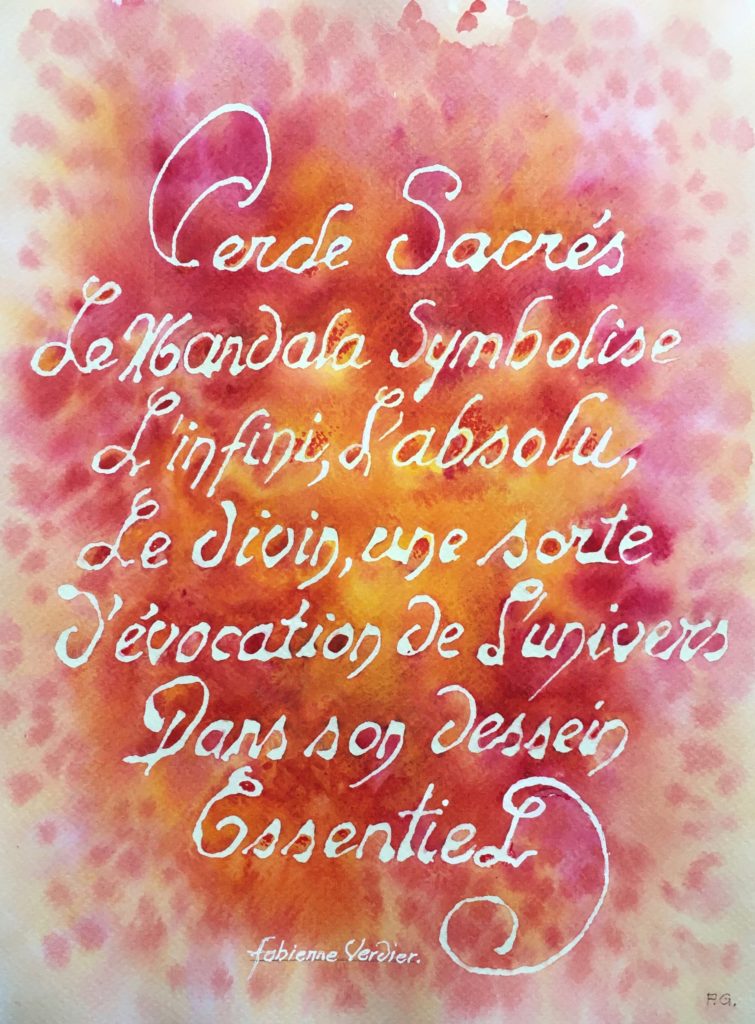 Cercle Sacrés
Le Mandala Symbolise
L'infini, L'absolu,
Le divin, une sorte
d'évocation de L'univers
Dans son dessein
EssentieL
Fabienne Verdier.
P.G.